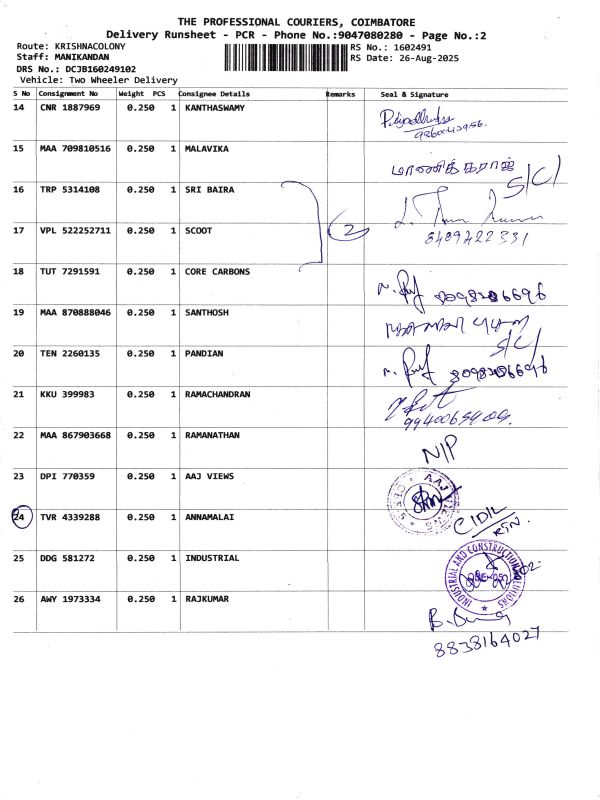 THE PROFESSIONAL COURIERS, COIMBATORE
Delivery Runsheet - PCR - Phone No.:9047080280 - Page No.:2
Route: KRISHNACOLONY
RS No.: 1602491
Staff: MANIKANDAN
RS Date: 26-Aug-2025
DRS No.: DCJB160249102
Vehicle: Two Wheeler Delivery
S No Consignment No Weight PCS Consignee Details Remarks Seal & Signature
14 CNR 1887969 0.250 1 KANTHASWAMY
15 MAA 709810516 0.250 1 MALAVIKA
மாணிக்கராஜ்
S/C/
16 TRP 5314108 0.250 1 SRI BAIRA
17 VPL 522252711 0.250 1 SCOOT
2
8489422331
18 TUT 7291591 0.250 1 CORE CARBONS
19 MAA 870888046 0.250 1 SANTHOSH
S/C/
20 TEN 2260135 0.250 1 PANDIAN
21 KKU 399983 0.250 1 RAMACHANDRAN
22 MAA 867903668 0.250 1 RAMANATHAN
N/P
23 DPI 770359 0.250 1 AAJ VIEWS
AAJ VIEWS
24 TVR 4339288 0.250 1 ANNAMALAI
C/D/L
RTN.
25 DDG 581272 0.250 1 INDUSTRIAL
INDUSTRIAL AND CONSTRUCTION SOLUTIONS
26 AWY 1973334 0.250 1 RAJKUMAR
8838164027